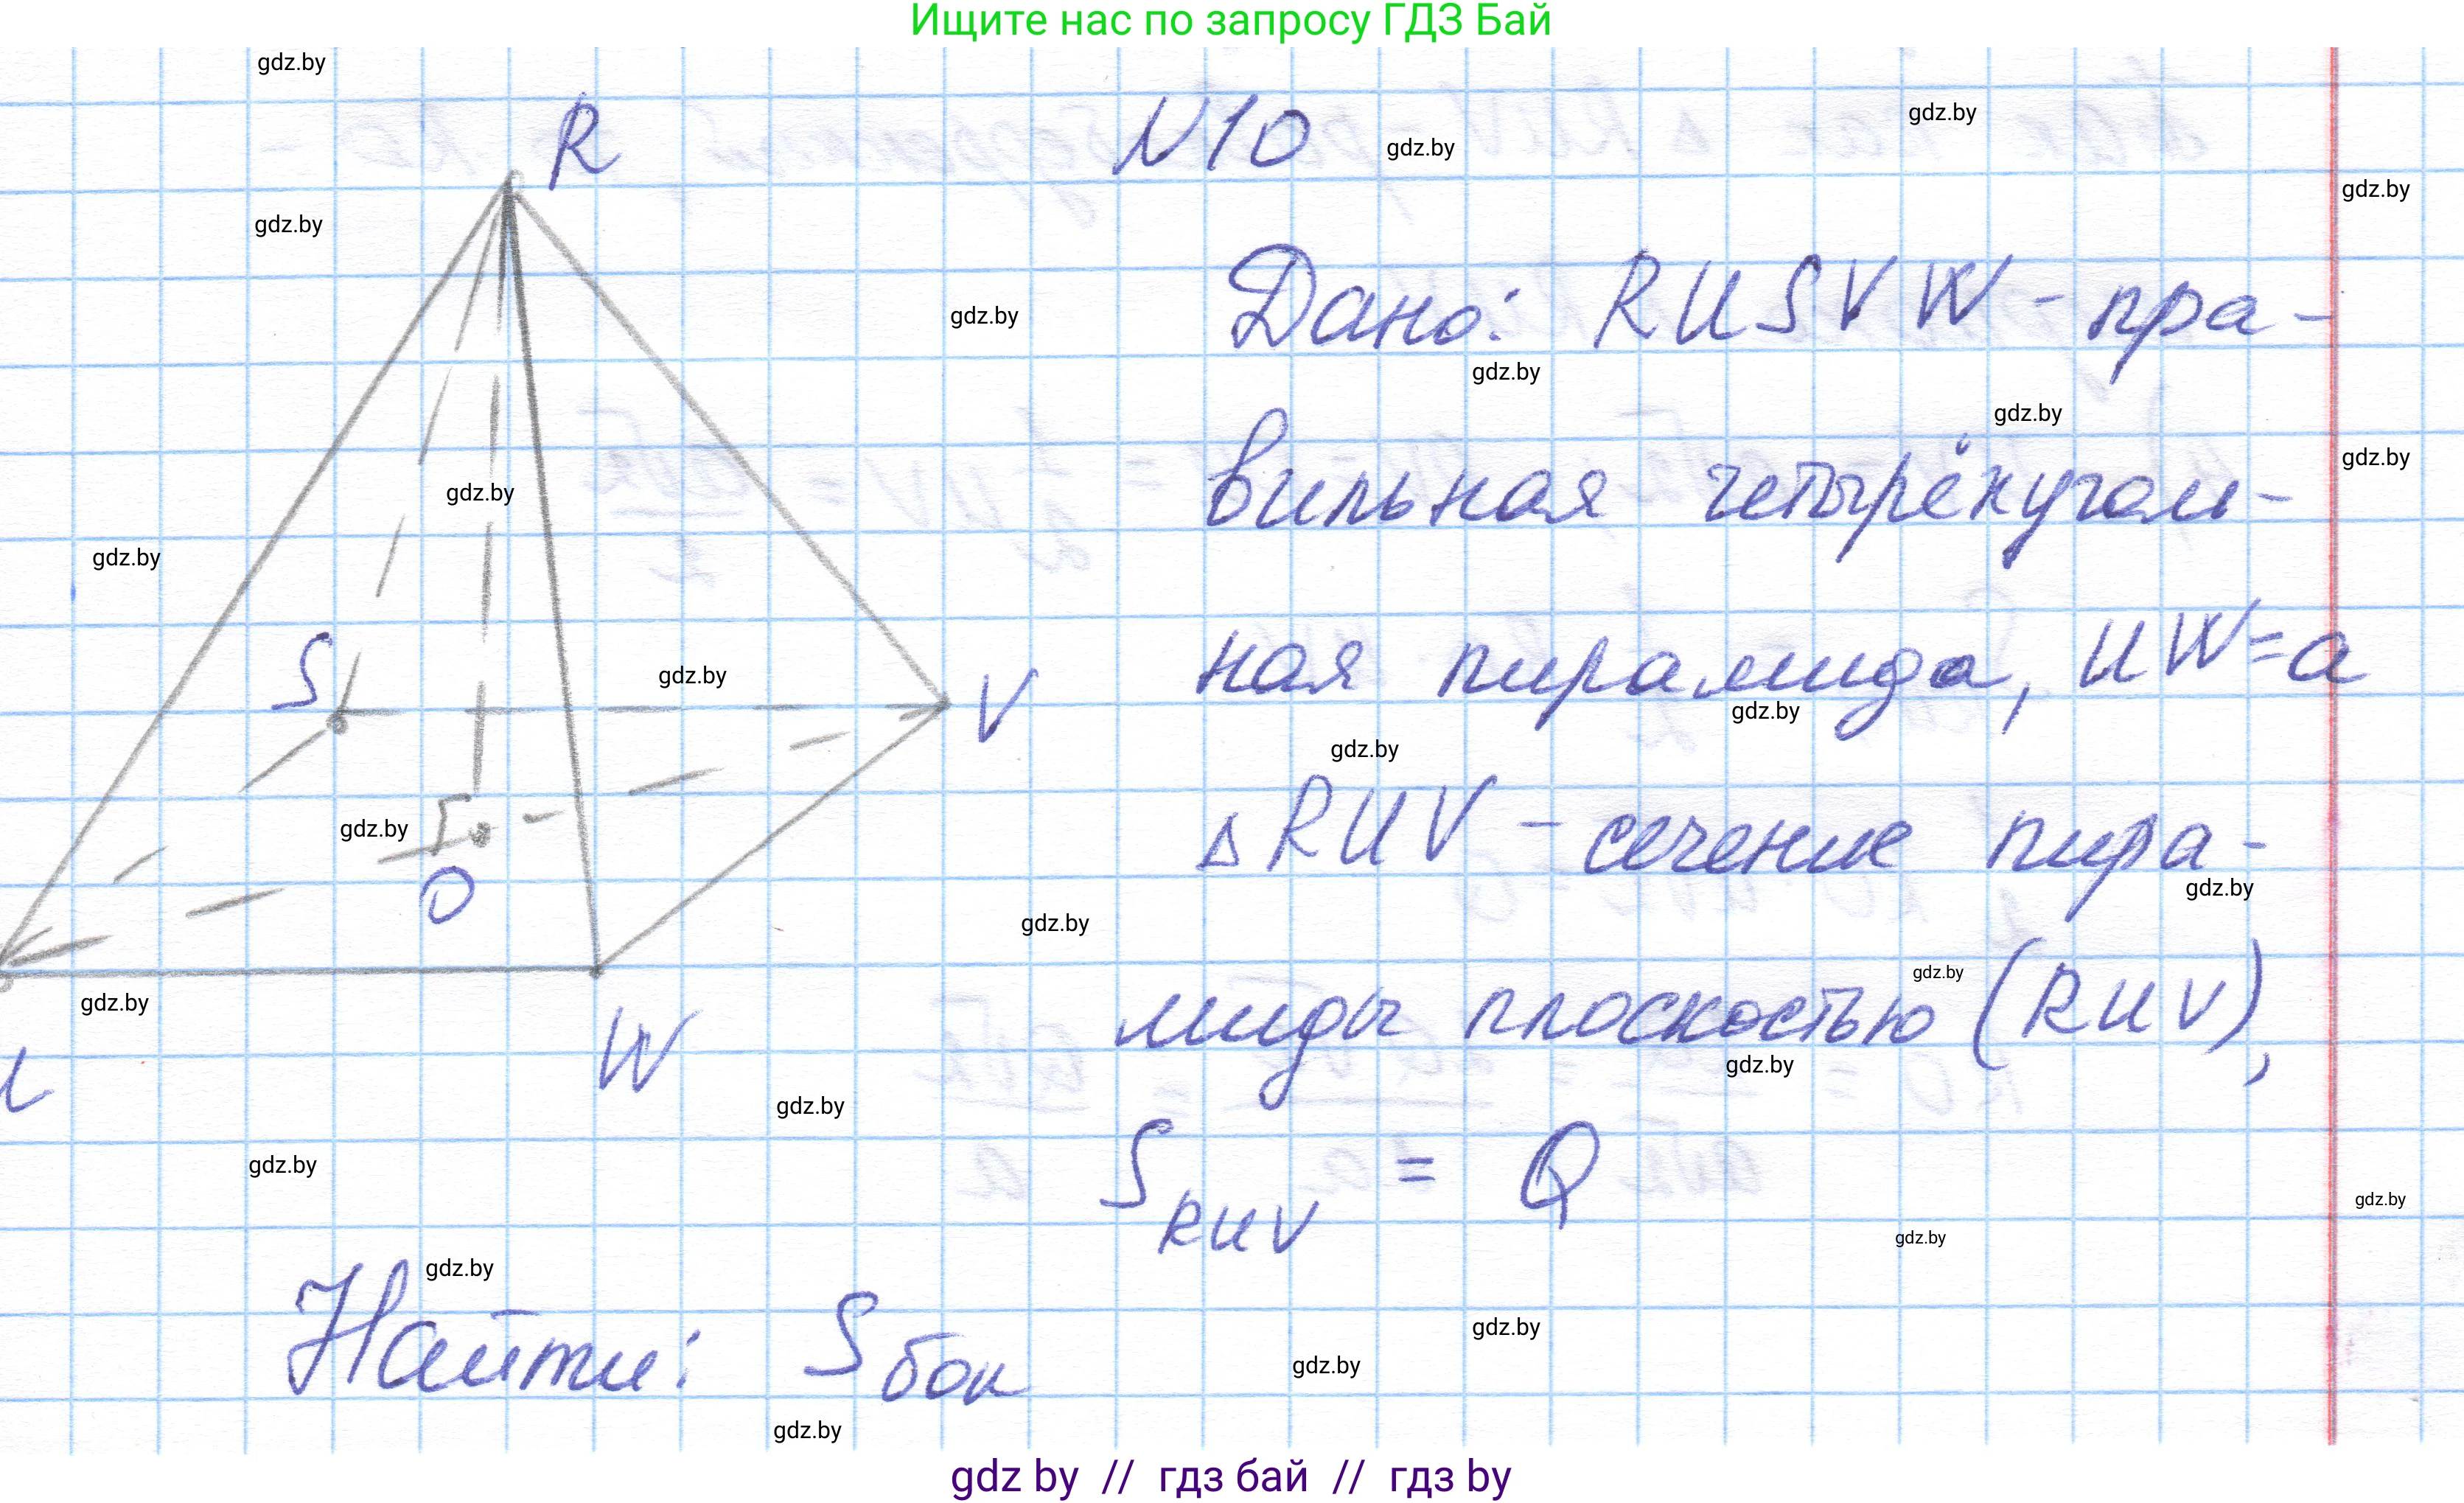 Ищите нас по запросу ГДЗ Бай
gdz.by
R
N10
gdz.by
gdz.by
gdz.by
gdz.by
Дано: RUSVW - пра-
gdz.by
gdz.by
gdz.by
вильная четырёхуголь-
gdz.by
gdz.by
gdz.by
S
gdz.by
V
ная пирамида, UW=a
gdz.by
gdz.by
gdz.by
O
△RUV - сечение пира-
gdz.by
gdz.by
gdz.by
W
миды плоскостью (RUV),
gdz.by
gdz.by
gdz.by
gdz.by
S RUV = Q
gdz.by
gdz.by
gdz.by
Найти: Sбок
gdz.by
gdz.by
gdz.by
gdz by // гдз бай // гдз by